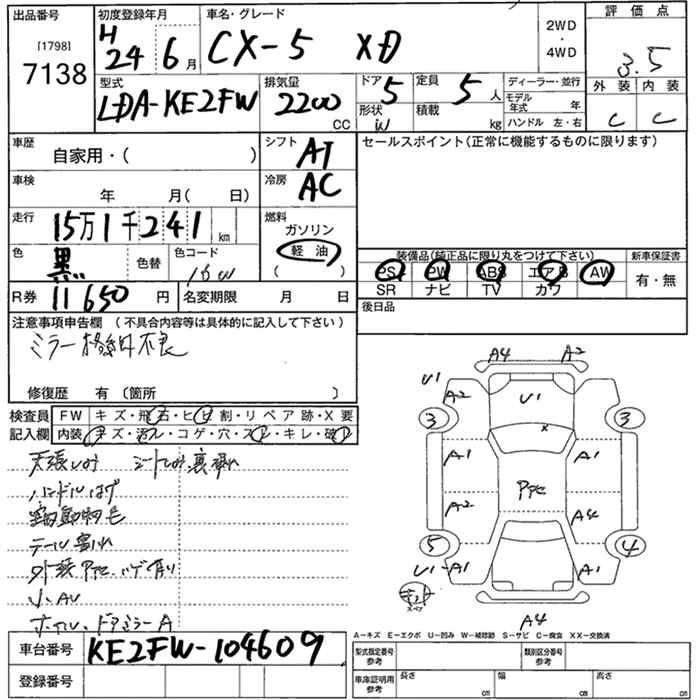 出品番号 初度登録年月 車名・グレード 2WD・4WD 評価点
[1798] 7138 H 24 6月 CX-5 XD 3.5
型式 排気量 ドア 定員 ディーラー・並行 外装 内装
LDA-KE2FW 2200 CC 5 5人 モデル年式 年 C C
形状 W 積載 kg ハンドル 左・右
車歴 自家用・( ) シフト AT セールスポイント(正常に機能するものに限ります)
車検 年 月( 日) 冷房 AC
走行 15万1千241km 燃料 ガソリン 軽油 ( )
色 黒 色替 色コード 16W
装備品(純正品に限り丸をつけて下さい) 新車保証書
PS PW ABS エアB AW 有・無
SR ナビ TV カワ
R券 11650円 名変期限 月 日 後日品
注意事項申告欄 (不具合内容等は具体的に記入して下さい)
ミラー格納不良
修復歴 有〔箇所 〕
検査員記入欄 FW キズ・飛石・ヒビ割・リペア跡・X要
内装 キズ・汚レ・コゲ・穴・スレ・キレ・破レ
天張しみ シートしみ
ハンドルはげ
動物毛
テール割れ
小AU
ホイル、ドアミラーA
A4 A2
U1 A2 U1
3 3
x
A1 A1
PPセ
A2 A4
5 4
U1-A1 A1
A4
A-キズ E-エクボ U-凹み W-補修跡 S-サビ C-腐食 XX-交換済
車台番号 KE2FW-104609
型式指定番号 参考 類別区分番号 参考
登録番号 車庫証明用 参考 長さ cm 幅 cm 高さ cm